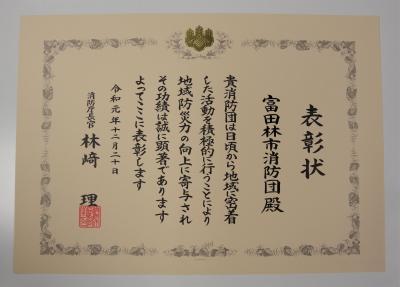 表彰状
富田林市消防団 殿
貴消防団は日頃から地域に密着
した活動を積極的に行うことにより
地域防災力の向上に寄与され
その功績は誠に顕著であります
よってここに表彰します
令和元年十二月二十日
消防庁長官 林﨑 理